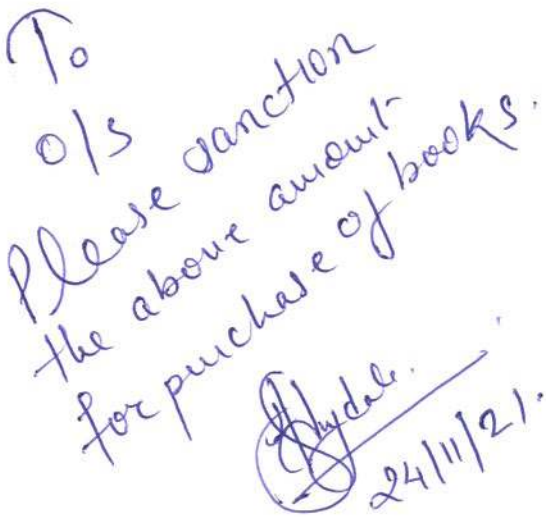 To
O/S
Please sanction
the above amount
for purchase of books.
24/11/21.